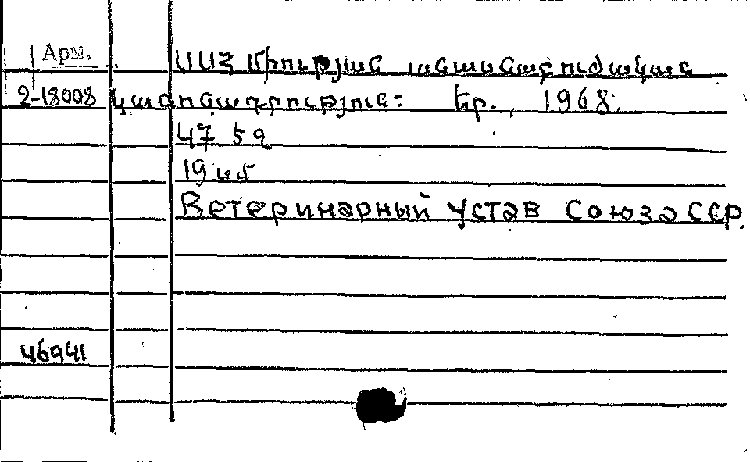 Арм.
ՍՍՀ Միության անասնաբուժական
2-18008 կանոնադրություն: Եր., 1968.
47 էջ
19 սմ
Ветеринарный устав Союза ССР.
46941